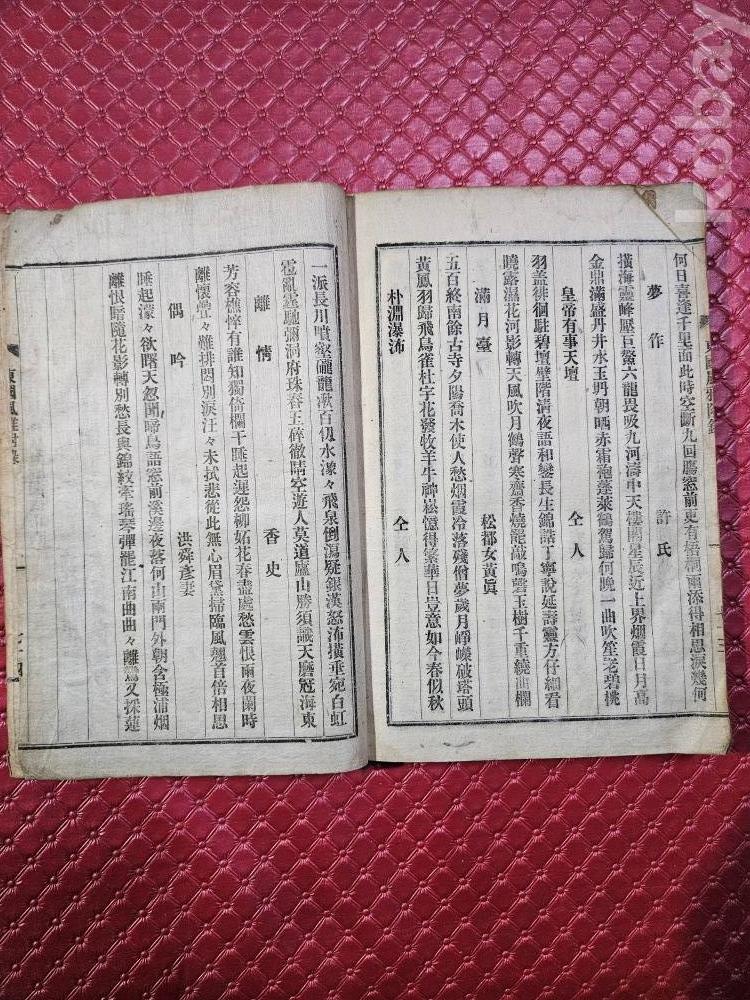 何日喜逢千里面此時空斷九回膓窓前更有梧桐雨添得相思淚幾何
夢作 許氏
橫海靈峰壓巨鰲六龍畏吸九河濤中天樓閣星辰近上界烟霞日月高
金鼎滿盛丹井水玉丹朝晒赤霜袍蓬萊鶴駕歸何晩一曲吹笙老碧桃
皇帝有事天壇 仝人
羽盖徘徊駐碧壇壁階淸夜語和鑾長生錦誥丁寧說延壽靈方仔細看
曉露濕花河影轉天風吹月鶴聲寒齋香燒罷敲鳴磬玉樹千重繞曲欄
滿月臺 松都女黃眞
古寺蕭然傍御溝
五百終南餘古寺夕陽喬木使人愁烟霞冷落殘僧夢歲月崢嶸破塔頭
黃鳳羽歸飛鳥雀杜字花發牧羊牛神松憶得繁華日豈意如今春似秋
朴淵瀑沛 仝人
一派長川噴壑礲龍湫百仭水潨々飛泉倒瀉疑銀漢怒沛橫垂宛白虹
雹亂霆馳彌洞府珠舂玉碎徹晴空遊人莫道廬山勝須識天磨冠海東
離情 香史
芳容憔悴有誰知獨倚欄干睡起遲怨柳妬花春盡處愁雲恨雨夜闌時
離懷疊々難排悶別淚汪々未拭悲從此無心眉黛掃臨風翹首倍相思
偶吟 洪舜彥妻
睡起濛々欲曙天忽聞啼鳥語窓前溪邊夜落何山雨門外朝含極浦烟
離恨暗隨花影轉別愁長與錦紋牽瑤琴彈罷江南曲曲々離鸞又採蓮
東國風雅
kobay